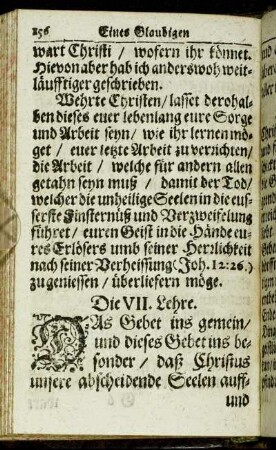 156 Eines Glaubigen
wart Christi / wofern ihr könnet.
Hievon aber hab ich anderswoh weit-
läufftiger geschrieben.
Wehrte Christen / lasset derohal-
ben dieses euer lebenlang eure Sorge
und Arbeit seyn / wie ihr lernen mö-
get / euer letzte Arbeit zu verrichten /
die Arbeit / welche für andern allen
gethan seyn muß / damit der Tod /
welcher die unheilige Seelen in die eus-
serste Finsternüß und Verzweifelung
führet / euren Geist in die Hände eu-
res Erlösers umb seiner Herzlichkeit
nach seiner Verheissung (Joh. 12:26.)
zu geniessen / überliefern möge.
Die VII. Lehre.
DAs Gebet ins gemein /
und dieses Gebet ins be-
sonder / daß Christus
unsere abscheidende Seelen auff-
und